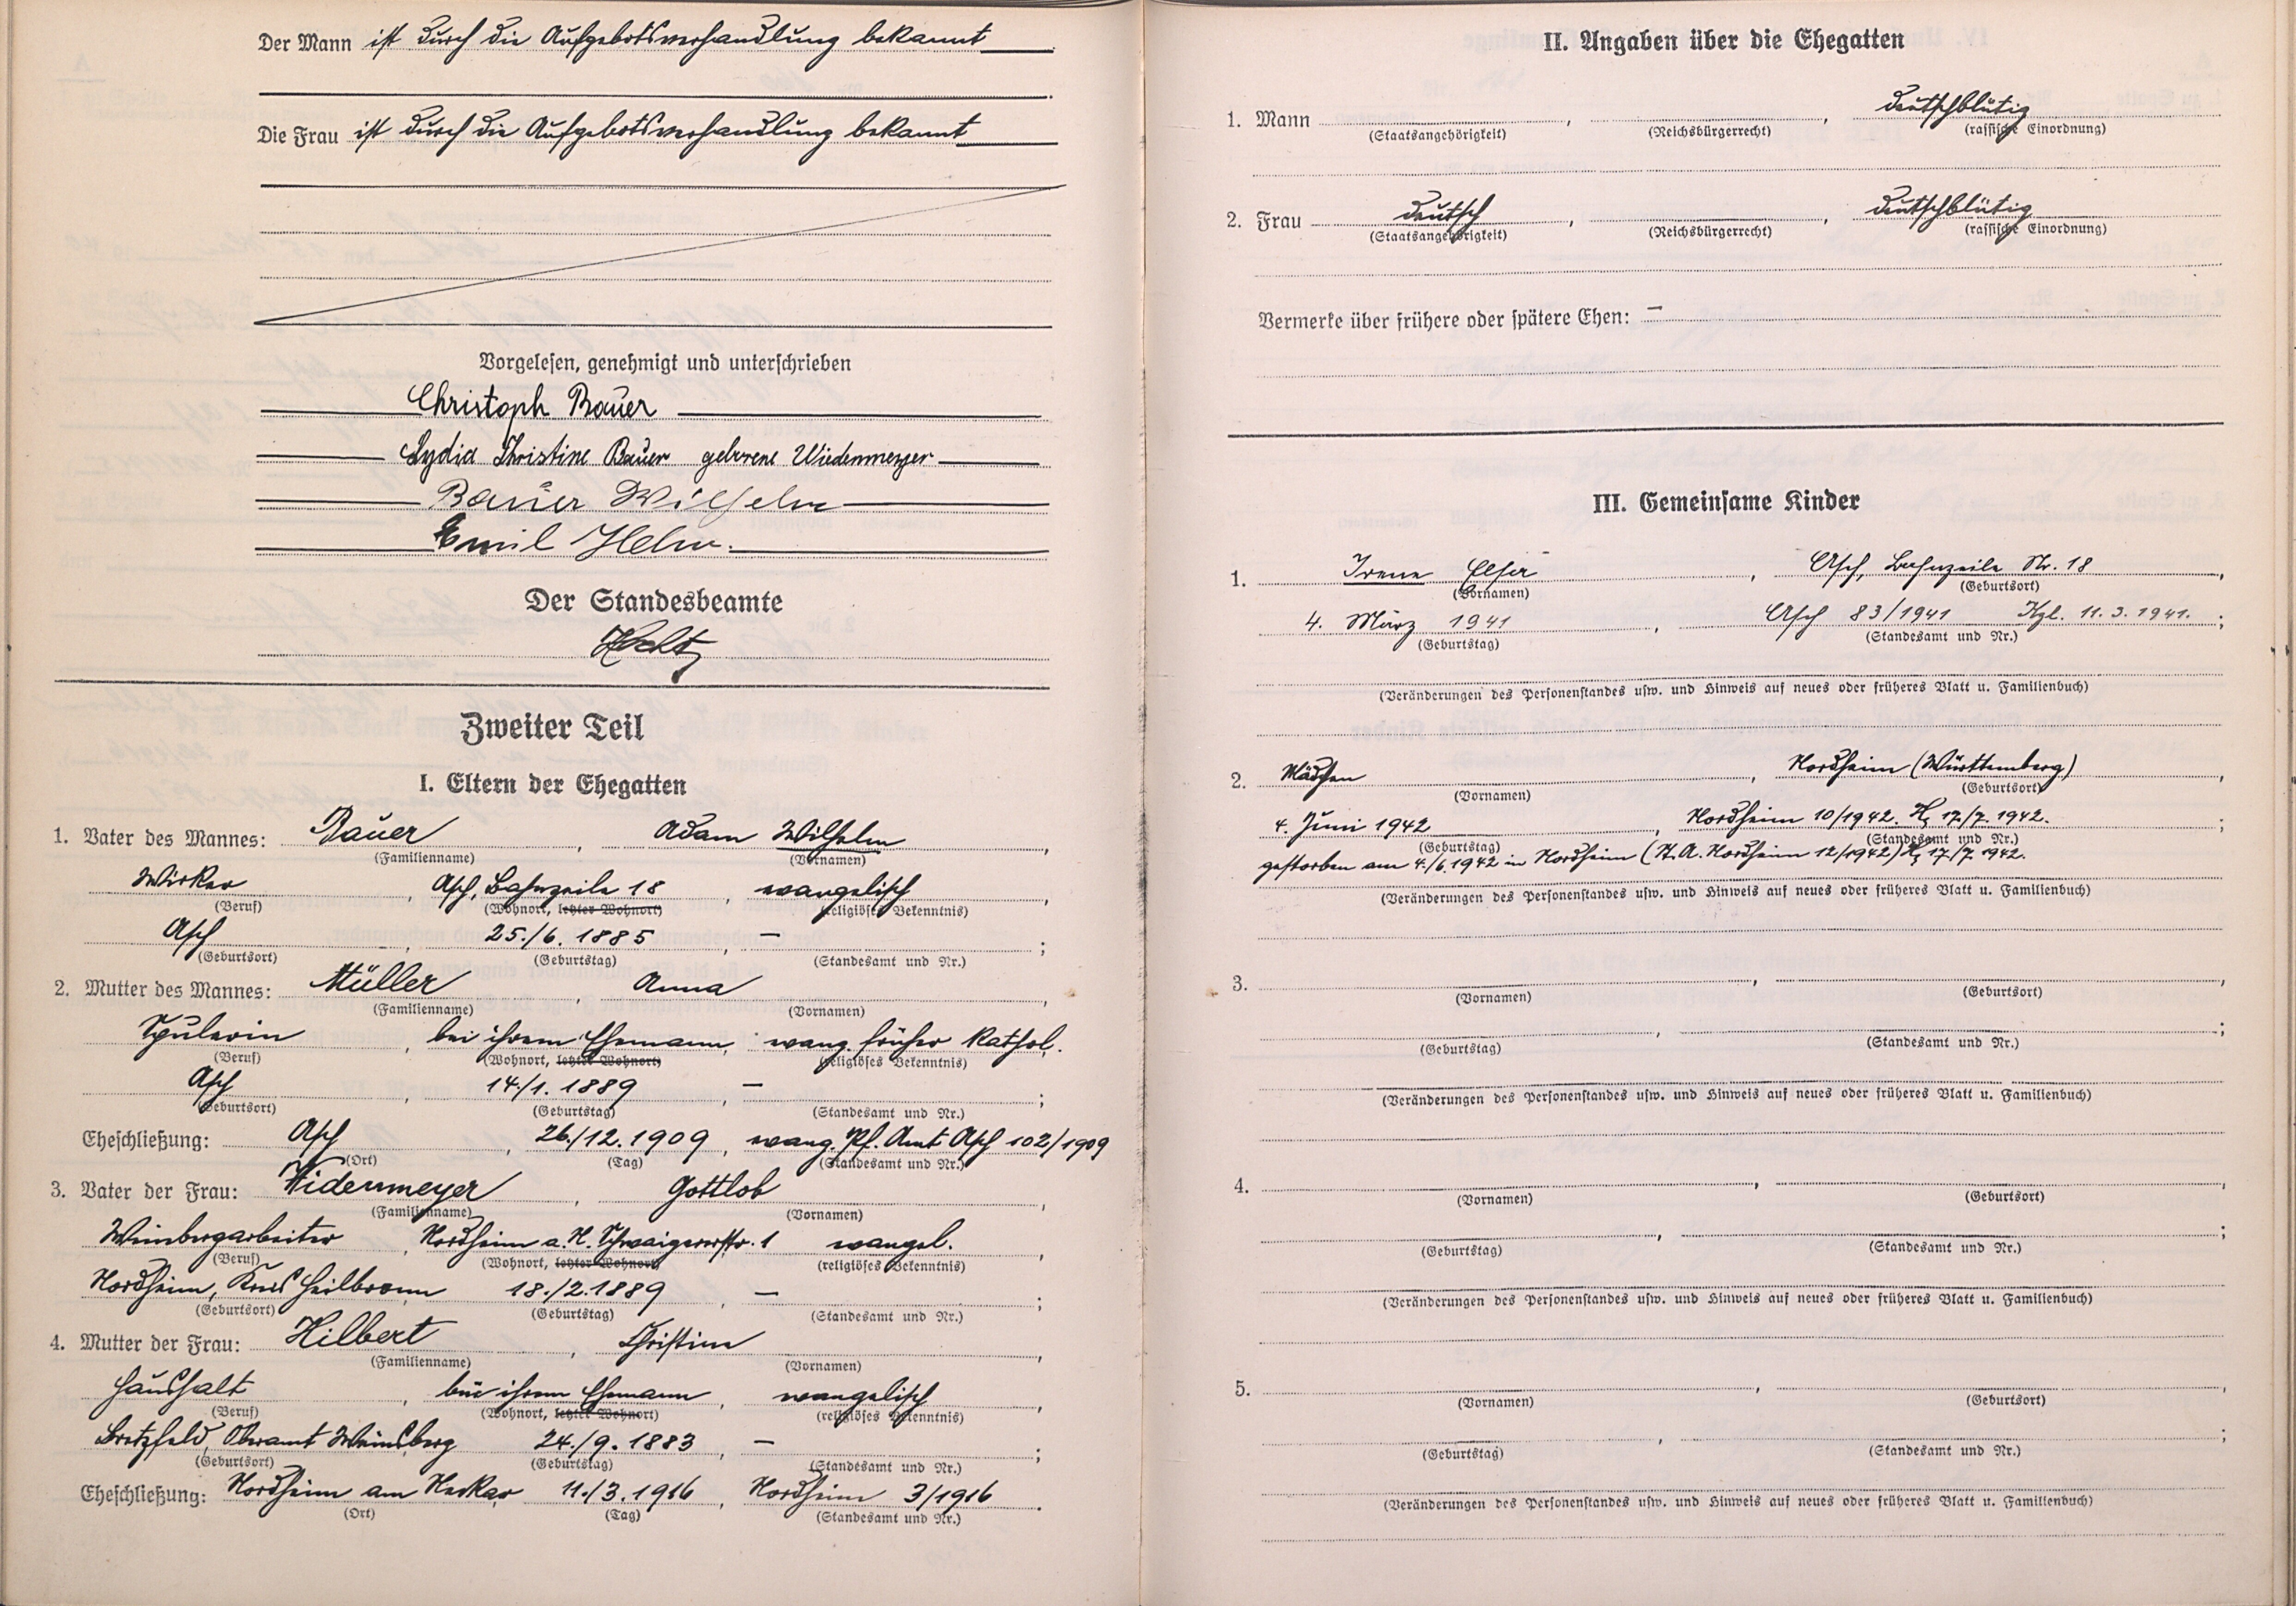 Der Mann ist durch die Aufgebotsverhandlung bekannt
Die Frau ist durch die Aufgebotsverhandlung bekannt
Vorgelesen, genehmigt und unterschrieben
Christoph Bauer
Lydia Christine Bauer geborene Wiedenmeyer
Bauer Wilhelm
Emil Helm.
Der Standesbeamte
Zweiter Teil
I. Eltern der Ehegatten
1. Vater des Mannes: Bauer, Adam Wilhelm,
(Familienname) (Vornamen)
Wirker, Asch, Bahnzeile 18, evangelisch,
(Beruf) (Wohnort, letzter Wohnort) (religiöses Bekenntnis)
Asch, 25./6. 1885, – ;
(Geburtsort) (Geburtstag) (Standesamt und Nr.)
2. Mutter des Mannes: Müller, Anna,
(Familienname) (Vornamen)
Spulerin, bei ihrem Ehemann, evang. früher kathol.
(Beruf) (Wohnort, letzter Wohnort) (religiöses Bekenntnis)
Asch, 14./1. 1889, – ;
(Geburtsort) (Geburtstag) (Standesamt und Nr.)
Eheschließung: Asch, 26./12. 1909, evang. Pf. Amt Asch 102/1909
(Ort) (Tag) (Standesamt und Nr.)
3. Vater der Frau: Widenmeyer, Gottlob,
(Familienname) (Vornamen)
Weinbergarbeiter, Nordheim a. N. Schwaigererstr. 1 evangel.,
(Beruf) (Wohnort, letzter Wohnort) (religiöses Bekenntnis)
Nordheim, Kreis Heilbronn 18./2. 1889, – ;
(Geburtsort) (Geburtstag) (Standesamt und Nr.)
4. Mutter der Frau: Hilbert, Christine,
(Familienname) (Vornamen)
Haushalt, bei ihrem Ehemann, evangelisch,
(Beruf) (Wohnort, letzter Wohnort) (religiöses Bekenntnis)
Bretzfeld, Oberamt Weinsberg 24./9. 1883, – ;
(Geburtsort) (Geburtstag) (Standesamt und Nr.)
Eheschließung: Nordheim am Neckar, 11./3. 1916, Nordheim 3/1916.
(Ort) (Tag) (Standesamt und Nr.)
II. Angaben über die Ehegatten
1. Mann , , deutschblütig
(Staatsangehörigkeit) (Reichsbürgerrecht) (rassische Einordnung)
2. Frau deutsch, , deutschblütig
(Staatsangehörigkeit) (Reichsbürgerrecht) (rassische Einordnung)
Vermerke über frühere oder spätere Ehen: –
III. Gemeinsame Kinder
1. Irene Elsa, Asch, Bahnzeile Nr. 18,
(Vornamen) (Geburtsort)
4. März 1941, Asch 83/1941 11. 3. 1941. ;
(Geburtstag) (Standesamt und Nr.)
(Veränderungen des Personenstandes usw. und Hinweis auf neues oder früheres Blatt u. Familienbuch)
2. Mädchen, Nordheim (Württemberg),
(Vornamen) (Geburtsort)
4. Juni 1942, Nordheim 10/1942. 17./7. 1942. ;
(Geburtstag) (Standesamt und Nr.)
gestorben am 4./6. 1942 in Nordheim (St. A. Nordheim 12/1942) 17./7. 1942.
(Veränderungen des Personenstandes usw. und Hinweis auf neues oder früheres Blatt u. Familienbuch)
3. , ,
(Vornamen) (Geburtsort)
, ;
(Geburtstag) (Standesamt und Nr.)
(Veränderungen des Personenstandes usw. und Hinweis auf neues oder früheres Blatt u. Familienbuch)
4. , ,
(Vornamen) (Geburtsort)
, ;
(Geburtstag) (Standesamt und Nr.)
(Veränderungen des Personenstandes usw. und Hinweis auf neues oder früheres Blatt u. Familienbuch)
5. , ,
(Vornamen) (Geburtsort)
, ;
(Geburtstag) (Standesamt und Nr.)
(Veränderungen des Personenstandes usw. und Hinweis auf neues oder früheres Blatt u. Familienbuch)